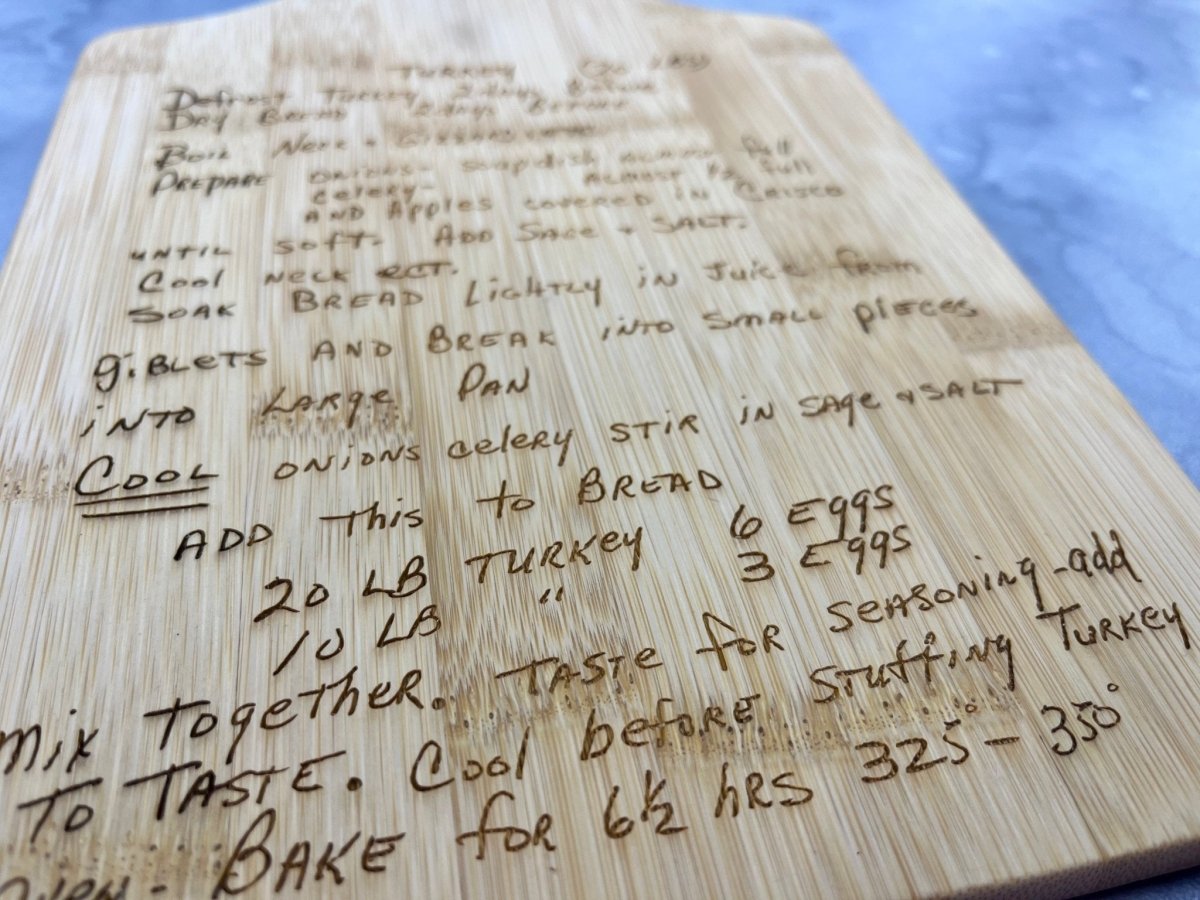 TURKEY (20 LBS)
Defrost Turkey 2 days Before
Dry Bread 2 days Before
Boil Neck +
Prepare onions - soup dish almost full
celery - almost 1/2 full
AND Apples covered in Crisco
until soft. ADD SAGE + SALT.
Cool neck ect.
SOAK BREAD Lightly in Juice from
giBLETS AND BREAK INTO SMALL PIECES
iNTO LARge PAN
COOL ONIONS celeRy STIR iN SAge + SALT
ADD this to BREAD
20 LB TURKey 6 Eggs
10 LB " 3 Eggs
Mix TogetheR. TASTe foR SeASONiNg - add
To TASTE. Cool befoRe STuffiNg TURKey
BAKE foR 6½ hRS 325° - 350°